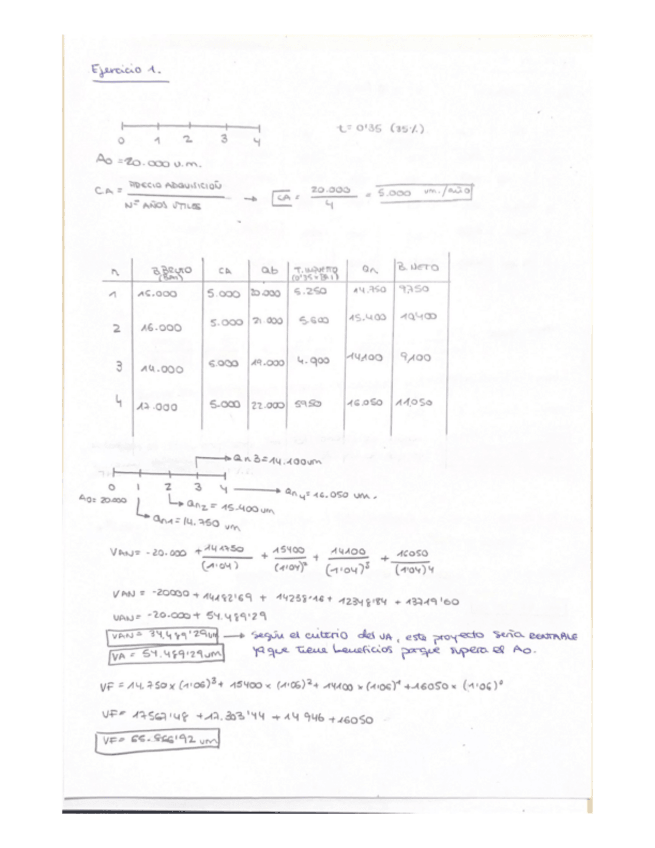 Ejercicio 1.
t = 0'35 (35%)
0 1 2 3 4
A0 = 20.000 u.m.
CA = PRECIO ADQUISICIÓN / Nº AÑOS ÚTILES → CA = 20.000 / 4 = 5.000 um./año
n B.BRUTO (BAI) CA Qb T. IMPUESTO (0'35×BAI) Qn B. NETO
1 15.000 5.000 20.000 5.250 14.750 9750
2 16.000 5.000 21.000 5.600 15.400 10400
3 14.000 5.000 19.000 4.900 14100 9100
4 17.000 5.000 22.000 5950 16.050 11050
Qn3 = 14.100um
0 1 2 3 4 → Qn4 = 16.050 um.
A0 = 20.000
Qn2 = 15.400um
Qn1 = 14.750 um
VAN = -20.000 + 141750 / (1'04) + 15400 / (1'04)² + 14100 / (1'04)³ + 16050 / (1'04)4
VAN = -20000 + 14182'69 + 14238'16 + 12348'84 + 13719'60
VAN = -20.000 + 54.489'29
VAN = 34.489'29um → Según el criterio del VA, este proyecto sería RENTABLE
VA = 54.489'29um ya que tiene beneficios porque supera el A0.
VF = 14.750 × (1'06)³ + 15400 × (1'06)² + 14100 × (1'06)¹ + 16050 × (1'06)⁰
VF = 17567'48 + 17.303'44 + 14946 + 16050
VF = 65.866'92 um